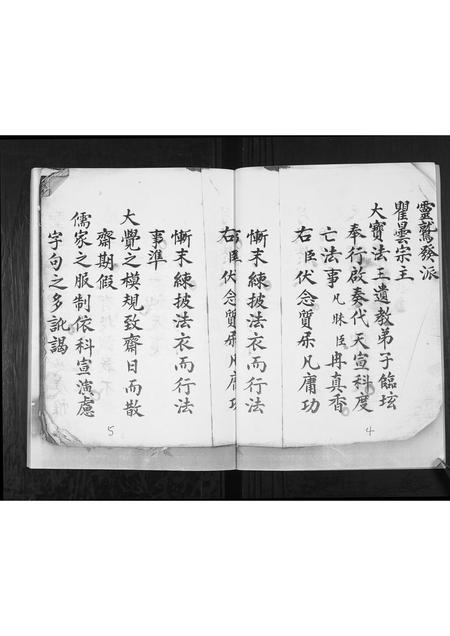 靈鷲發派
瞿曇宗主
大寶法王遺教弟子臨坛
奉行啟奏代天宣科度
亡法事凡昧臣冉真香
右臣伏念質呆凡庸功
慚末練披法衣而行法
4
右臣伏念質呆凡庸功
慚末練披法衣而行法
事準
大覺之模規致齋日而散
齋期假
儒家之服制依科宣演慮
字句之多訛謁
5